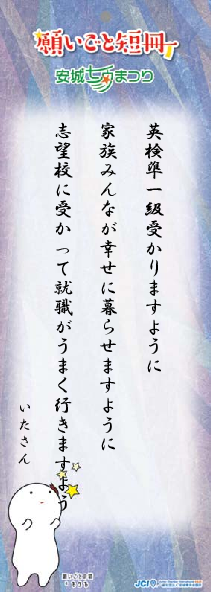 願いごと短冊
安城七夕まつり
英検準一級受かりますように
家族みんなが幸せに暮らせますように
志望校に受かって就職がうまく行きますよう
いたさん
願いごと短冊
JCI